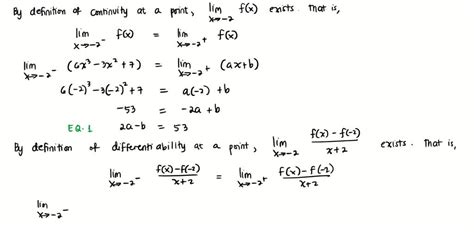 By definition of continuity at a point, lim x→-2 f(x) exists. That is,
lim x→-2⁻ f(x) = lim x→-2⁺ f(x)
lim x→-2⁻ (6x³-3x²+7) = lim x→-2⁺ (ax+b)
6(-2)³-3(-2)²+7 = a(-2)+b
-53 = -2a+b
EQ.1 2a-b = 53
By definition of differentiability at a point, lim x→-2 f(x)-f(-2) / x+2 exists. That is,
lim x→-2⁻ f(x)-f(-2) / x+2 = lim x→-2⁺ f(x)-f(-2) / x+2
lim x→-2⁻